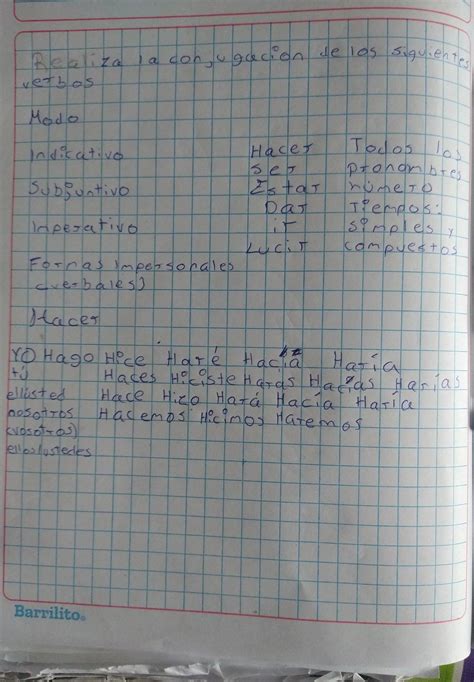 Realiza la conjugacion de los siguientes
verbos
Modo
Indicativo Hacer Todos los
ser pronombres
Subjuntivo Estar número
Dar Tiempos:
Imperativo ir simples y
Lucir compuestos
Formas impersonales
(verbales)
Hacer
YO Hago Hice Haré Hacía Haría
tú Haces Hiciste Haras Hacías Harías
el/usted Hace Hizo Hará Hacía Haría
nosotros Hacemos Hicimos Haremos
(vosotros)
ellos/ustedes
Barrilito®